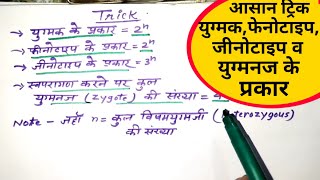 Trick
→ युग्मक के प्रकार = 2ⁿ
→ फीनोटाइप के प्रकार = 2ⁿ
→ जीनोटाइप के प्रकार = 3ⁿ
→ स्वपरागण कराने पर कुल
युग्मनज (zygote) की संख्या = 4
Note - जहाँ n = कुल विषमयुग्मजी (terozygous)
की संख्या
आसान ट्रिक
युग्मक,फेनोटाइप,
जीनोटाइप व
युग्मनज के
प्रकार